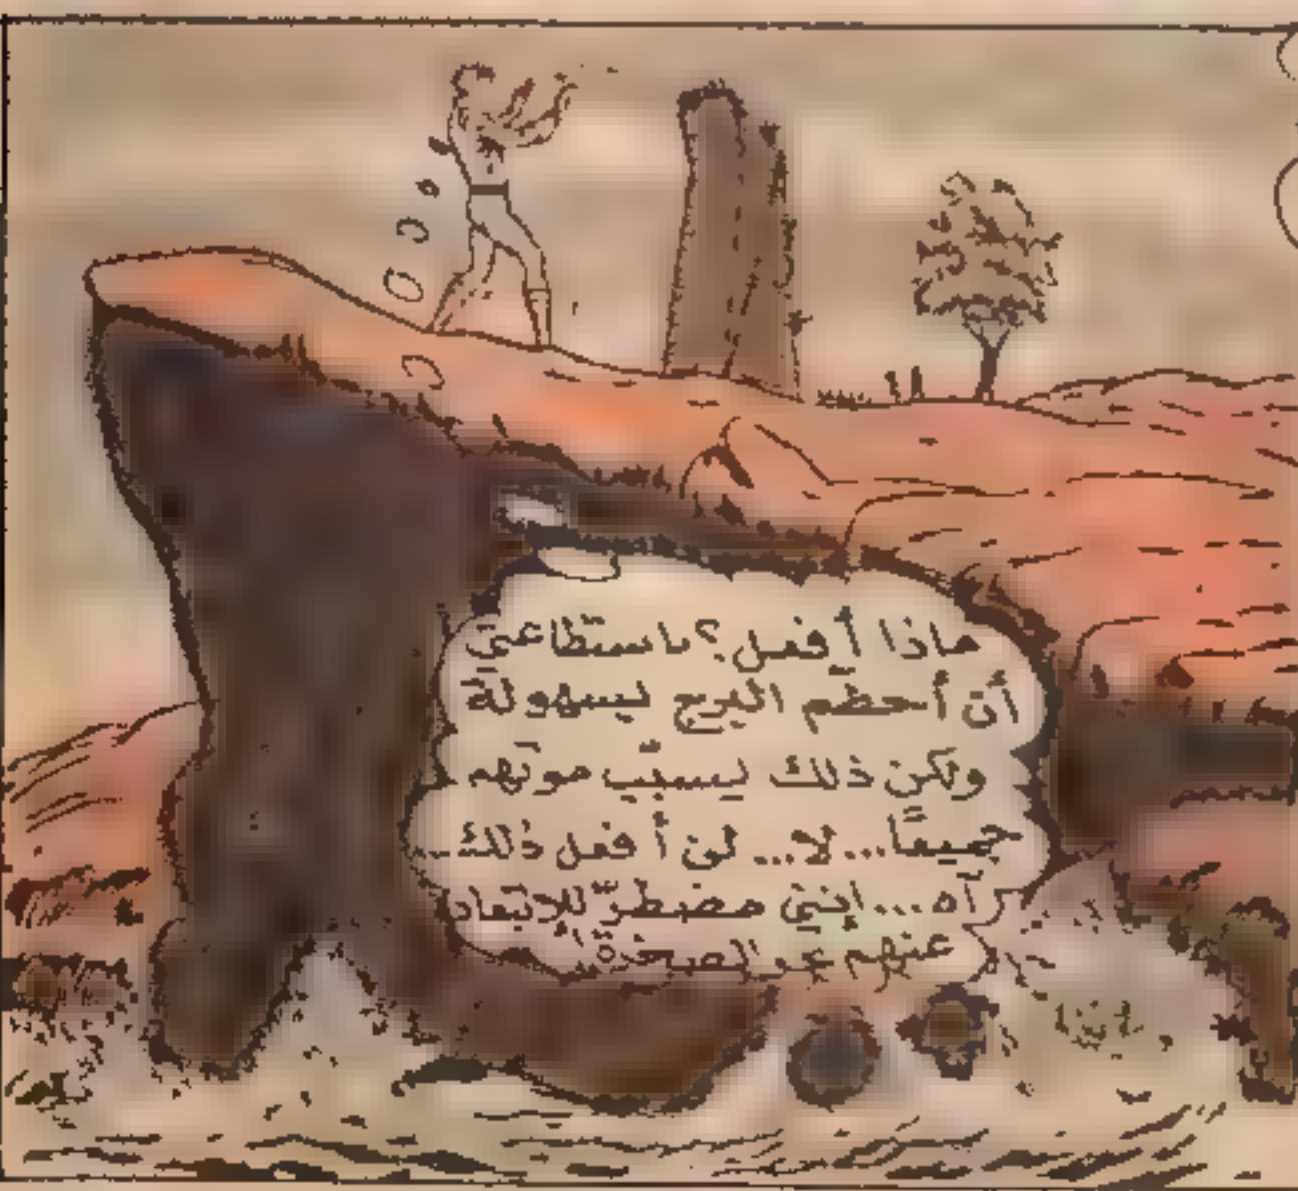 ماذا أفعل؟ باستطاعتي
أن أحطم البرج بسهولة
ولكن ذلك يسبب موتهم
جميعًا... لا... لن أفعل ذلك..
آه... إنني مضطرّ للإبتعاد
عنهم الصخرة!